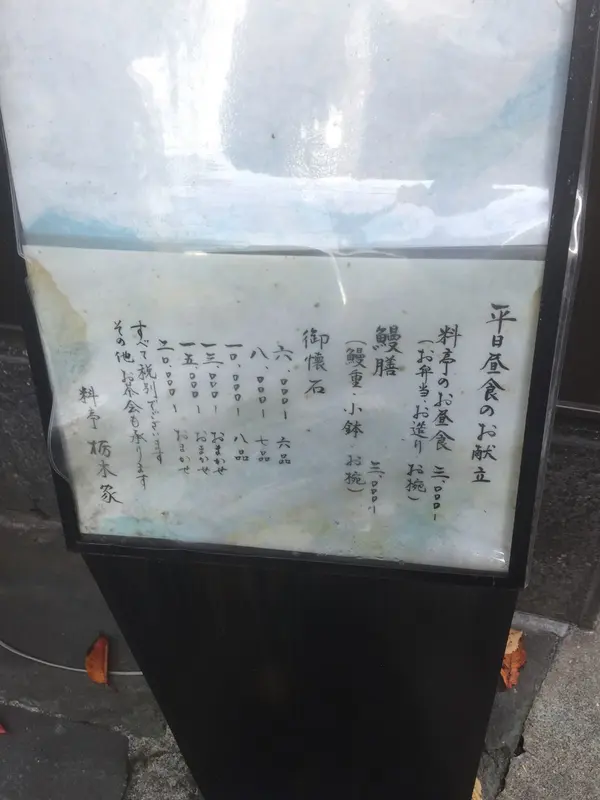 平日昼食のお献立
料亭のお昼食 三、〇〇〇ー
(お弁当・お造り お椀)
鰻膳 三、〇〇〇ー
(鰻重・小鉢 お椀)
御懐石
六、〇〇〇ー 六品
八、〇〇〇ー 七品
一〇、〇〇〇ー 八品
一三、〇〇〇ー おまかせ
一五、〇〇〇ー おまかせ
二〇、〇〇〇ー おまかせ
すべて税別でございます
その他 お茶会も承ります
料亭 栃木家